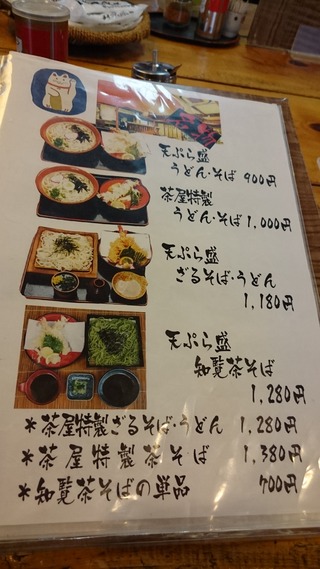 天ぷら盛
うどん・そば 900円
茶屋特製
うどん・そば 1,000円
天ぷら盛
ざるそば・うどん
1,180円
天ぷら盛
知覧茶そば
1,280円
*茶屋特製ざるそば・うどん 1,280円
*茶屋特製茶そば 1,380円
*知覧茶そばの単品 700円